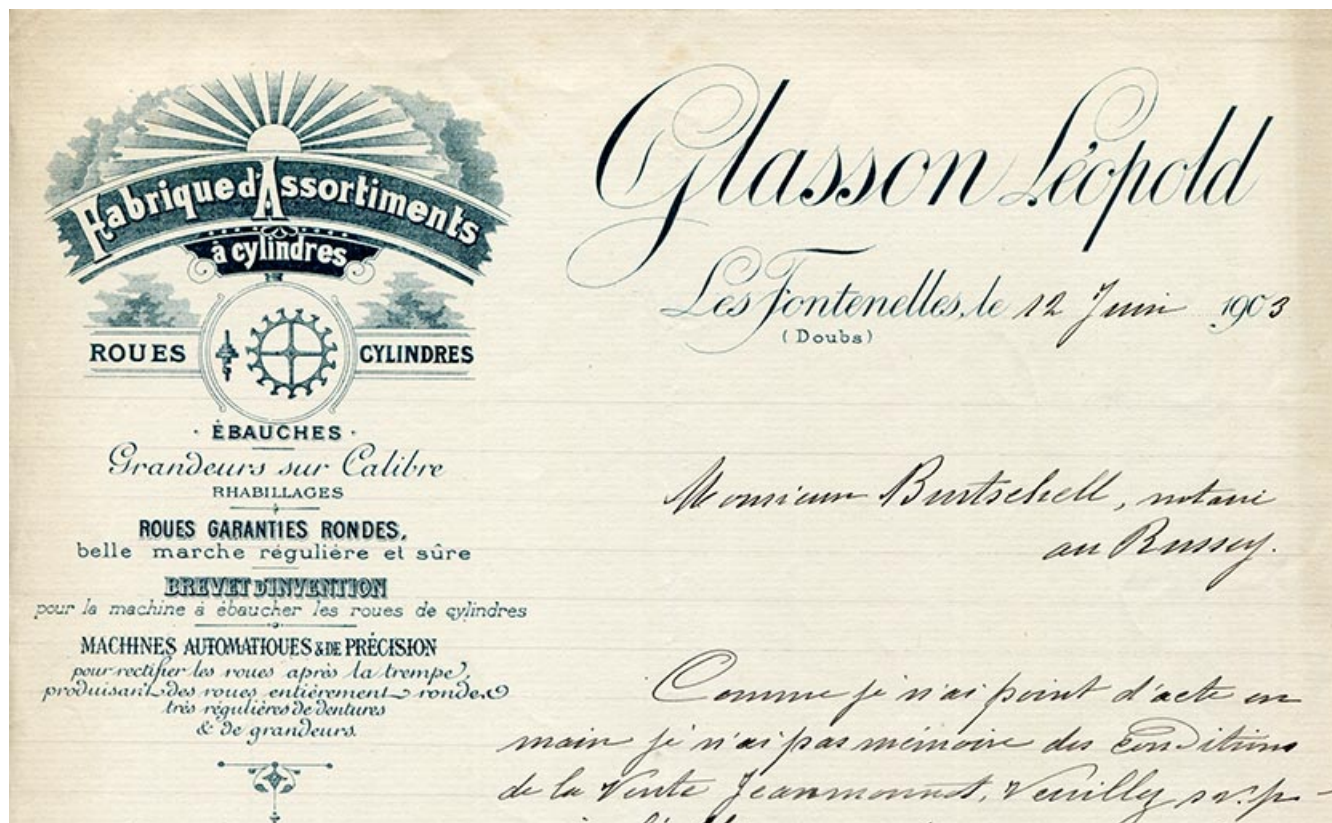 Fabrique d'Assortiments
à cylindres
ROUES
CYLINDRES
· ÉBAUCHES ·
Grandeurs sur Calibre
RHABILLAGES
ROUES GARANTIES RONDES,
belle marche régulière et sûre
BREVET D'INVENTION
pour la machine à ébaucher les roues de cylindres
MACHINES AUTOMATIQUES & DE PRÉCISION
pour rectifier les roues après la trempe,
produisant des roues entièrement rondes
très régulières de dentures
& de grandeurs.
Glasson Léopold
Les Fontenelles, le 12 Juin 1903
(Doubs)
Monsieur Burtschell, notaire
au Russey.
Comme je n'ai point d'acte en
main je n'ai pas mémoire des Conditions
de la Vente Jeanmonnot, Veuillez s.v.p.